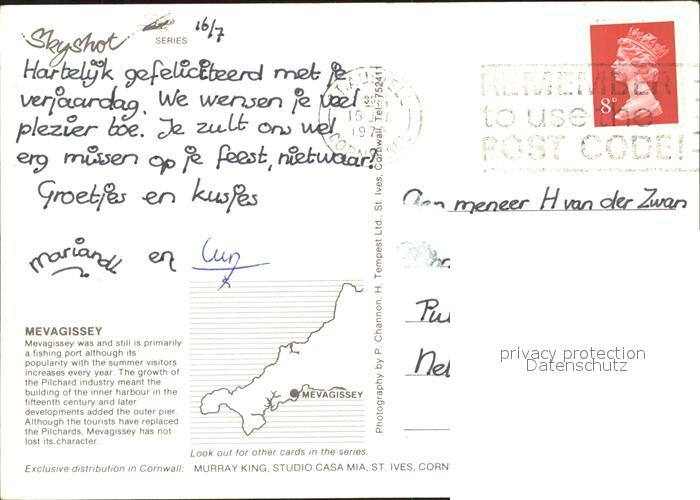 Skyshot SERIES 16/7
Hartelijk gefeliciteerd met je
verjaardag. We wensen je veel
plezier toe. Je zult ons wel
erg missen op je feest, nietwaar!
Groetjes en kusjes
en
MEVAGISSEY
Mevagissey was and still is primarily
a fishing port although its
popularity with the summer visitors
increases every year. The growth of
the Pilchard industry meant the
building of the inner harbour in the
fifteenth century and later
developments added the outer pier.
Although the tourists have replaced
the Pilchards, Mevagissey has not
lost its character.
MEVAGISSEY
Look out for other cards in the series.
Exclusive distribution in Cornwall: MURRAY KING, STUDIO CASA MIA, ST. IVES, CORN
Photography by P. Channon, H. Tempest Ltd., St. Ives, Cornwall, Tel: 752411
8P
REMEMBER
to use the
POST CODE!
Aan meneer H van der Zwan
Pu
Nel
privacy protection
Datenschutz